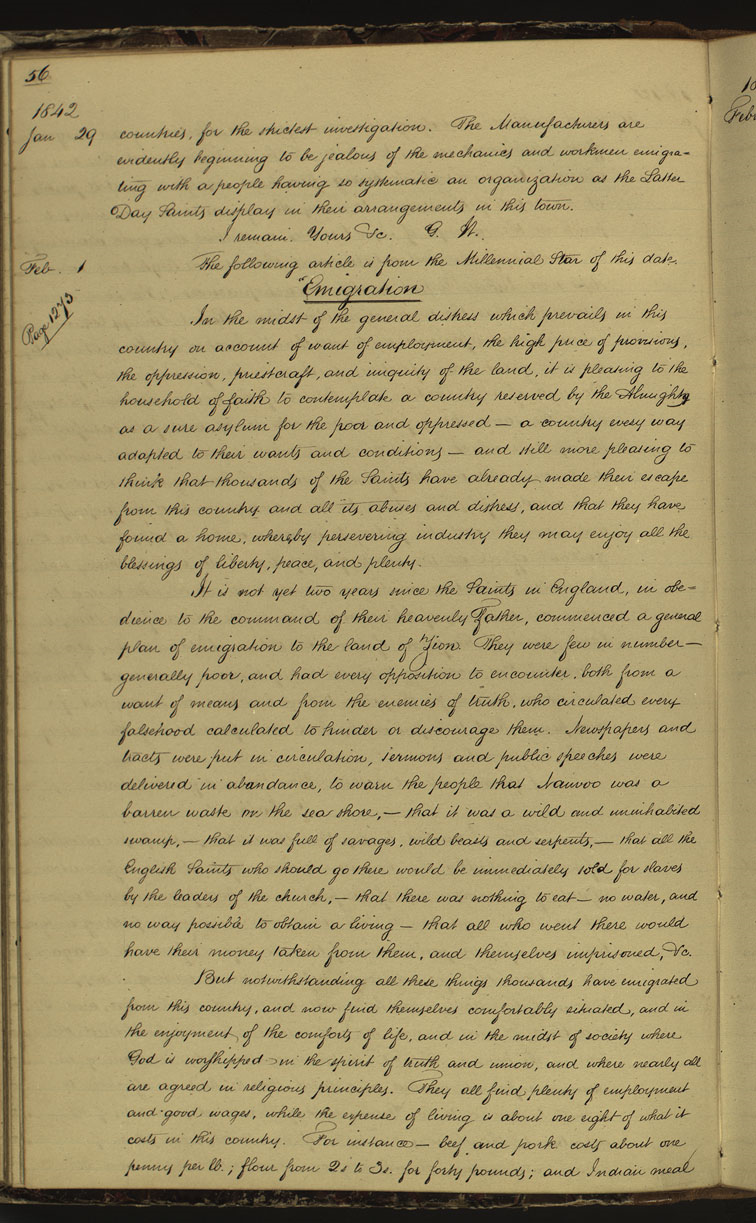 56
1842
Jan 29 countries, for the strictest investigation. The Manufacturers are
evidently beginning to be jealous of the mechanics and workmen emigra-
ting with a people having so systematic an organization as the Latter
Day Saints display in their arrangements in this town.
I remain. Yours &c. G. W.
Feb. 1 The following article is from the Millennial Star of this date.
"Emigration
Page 1275
In the midst of the general distress which prevails in this
country on account of want of employment, the high price of provisions,
the oppression, priestcraft, and iniquity of the land, it is pleasing to the
household of faith to contemplate a country reserved by the Almighty
as a sure asylum for the poor and oppressed — a country every way
adapted to their wants and conditions — and still more pleasing to
think that thousands of the Saints have already made their escape
from this country and all its abuses and distress, and that they have
found a home, whereby persevering industry they may enjoy all the
blessings of liberty, peace, and plenty.
It is not yet two years since the Saints in England, in obe-
dience to the command of their heavenly Father, commenced a general
plan of emigration to the land of Zion. They were few in number —
generally poor, and had every opposition to encounter, both from a
want of means and from the enemies of truth, who circulated every
falsehood calculated to hinder or discourage them. Newspapers and
tracts were put in circulation, sermons and public speeches were
delivered in abundance, to warn the people that Nauvoo was a
barren waste on the sea shore, — that it was a wild and uninhabited
swamp, — that it was full of savages, wild beasts and serpents, — that all the
English Saints who should go there would be immediately sold for slaves
by the leaders of the church, — that there was nothing to eat — no water, and
no way possible to obtain a living — that all who went there would
have their money taken from them, and themselves imprisoned, &c.
But notwithstanding all these things thousands have emigrated
from this country, and now find themselves comfortably situated, and in
the enjoyment of the comforts of life, and in the midst of society where
God is worshipped in the spirit of truth and union, and where nearly all
are agreed in religious principles. They all find plenty of employment
and good wages, while the expense of living is about one eight of what it
costs in this country. For instance — beef and pork costs about one
penny per lb.; flour from 2s to 3s. for forty pounds; and Indian meal